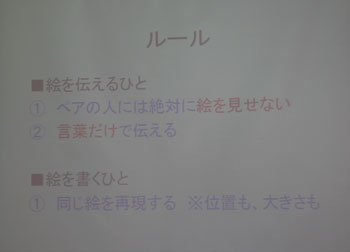 ルール
■絵を伝えるひと
① ペアの人には絶対に絵を見せない
② 言葉だけで伝える
■絵を書くひと
① 同じ絵を再現する ※位置も、大きさも